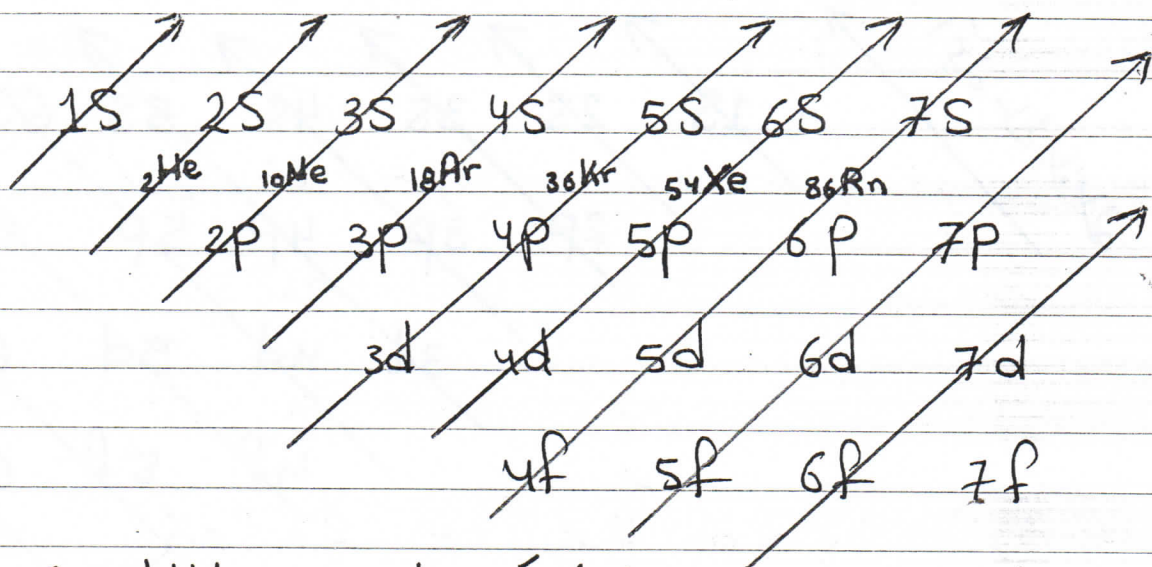 1S 2S 3S 4S 5S 6S 7S
₂He ₁₀Ne ₁₈Ar ₃₆Kr ₅₄Xe ₈₆Rn
2p 3p 4p 5p 6p 7p
3d 4d 5d 6d 7d
4f 5f 6f 7f